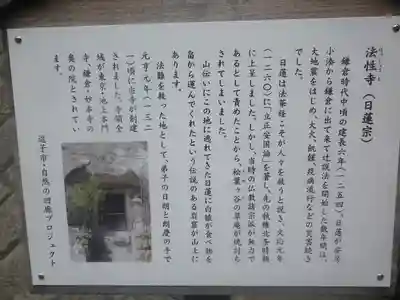 法性寺(日蓮宗)
鎌倉時代中頃の建長六年(一二五四)、日蓮が安房
小湊から鎌倉に出て来て辻説法を開始した数年間は、
大地震をはじめ、大火、飢饉、疫病流行などの災害続き
でした。
日蓮は法華経こそが人々を救うと説き、文応元年
(一二六〇)に「立正安国論」を著し、先の執権北条時頼
に上呈しました。しかし、当時の仏教諸宗派が無力で
あるとして責めたことから、松葉ヶ谷の草庵が焼討ち
されてしまいました。
山伝いにこの地に逃れてきた日蓮に白猿が食べ物を
畠から運んでくれたという伝説のある岩窟が山上に
あります。
法難を救った地として、弟子の日朗と朗慶の手で
元亨元年(一三二
一)頃に当寺が創建
されました。寺領全
域が東京・池上本門
寺、鎌倉・妙本寺の
奥の院とされてい
ます。
逗子市・自然の回廊プロジェクト